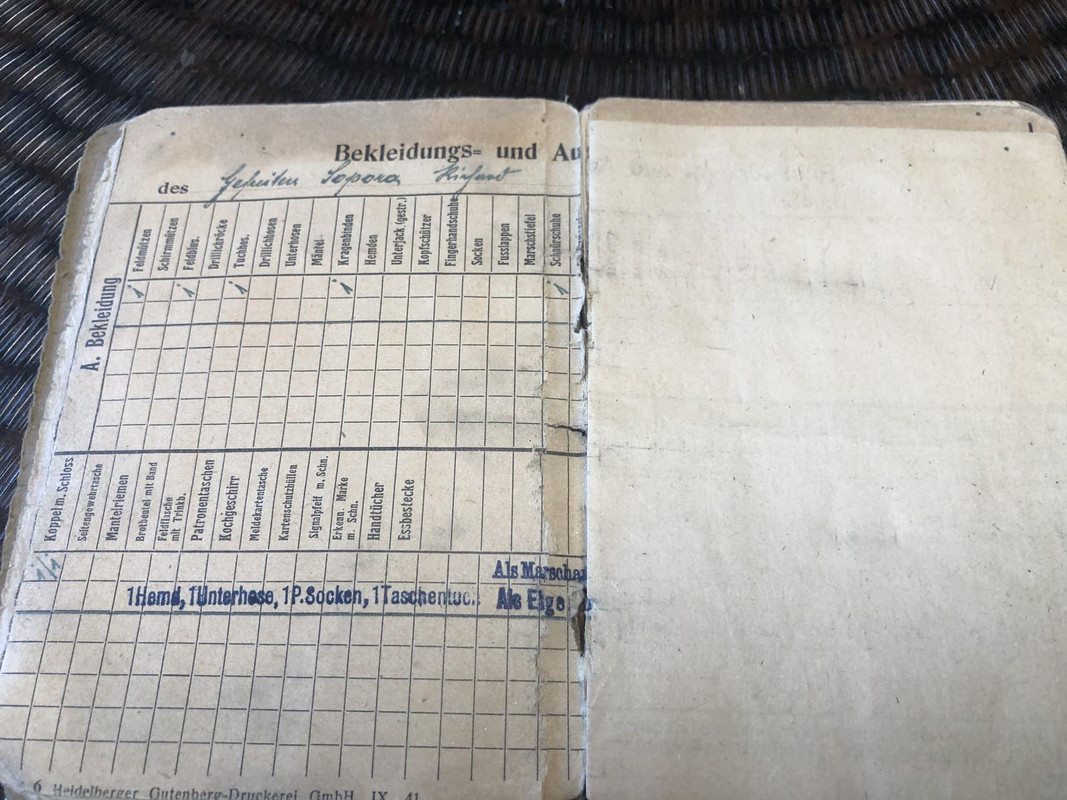 Bekleidungs= und Au
des Gefreiten Sopora Richard
A. Bekleidung
Feldmützen
Schirmmützen
Feldblus.
Drillichröcke
Tuchhos.
Drillichhosen
Unterhosen
Mäntel
Kragenbinden
Hemden
Unterjack (gestr.)
Kopfschützer
Fingerhandschuhe
Socken
Fusslappen
Marschstiefel
Schnürschuhe
1 1 1 1 1
Koppel m. Schloss
Seitengewehrtasche
Mantelriemen
Brotbeutel mit Band
Feldflasche
mit Trinkb.
Patronentaschen
Kochgeschirr
Meldekartentasche
Kartenschutzhüllen
Signalpfeif m. Schn.
Erkenn. Marke
m. Schn.
Handtücher
Essbestecke
1/1
Als Marscha
1Hemd, 1Unterhose, 1P.Socken, 1Taschentuch Als Eige
6 Heidelberger Gutenberg-Druckerei GmbH. IX. 41